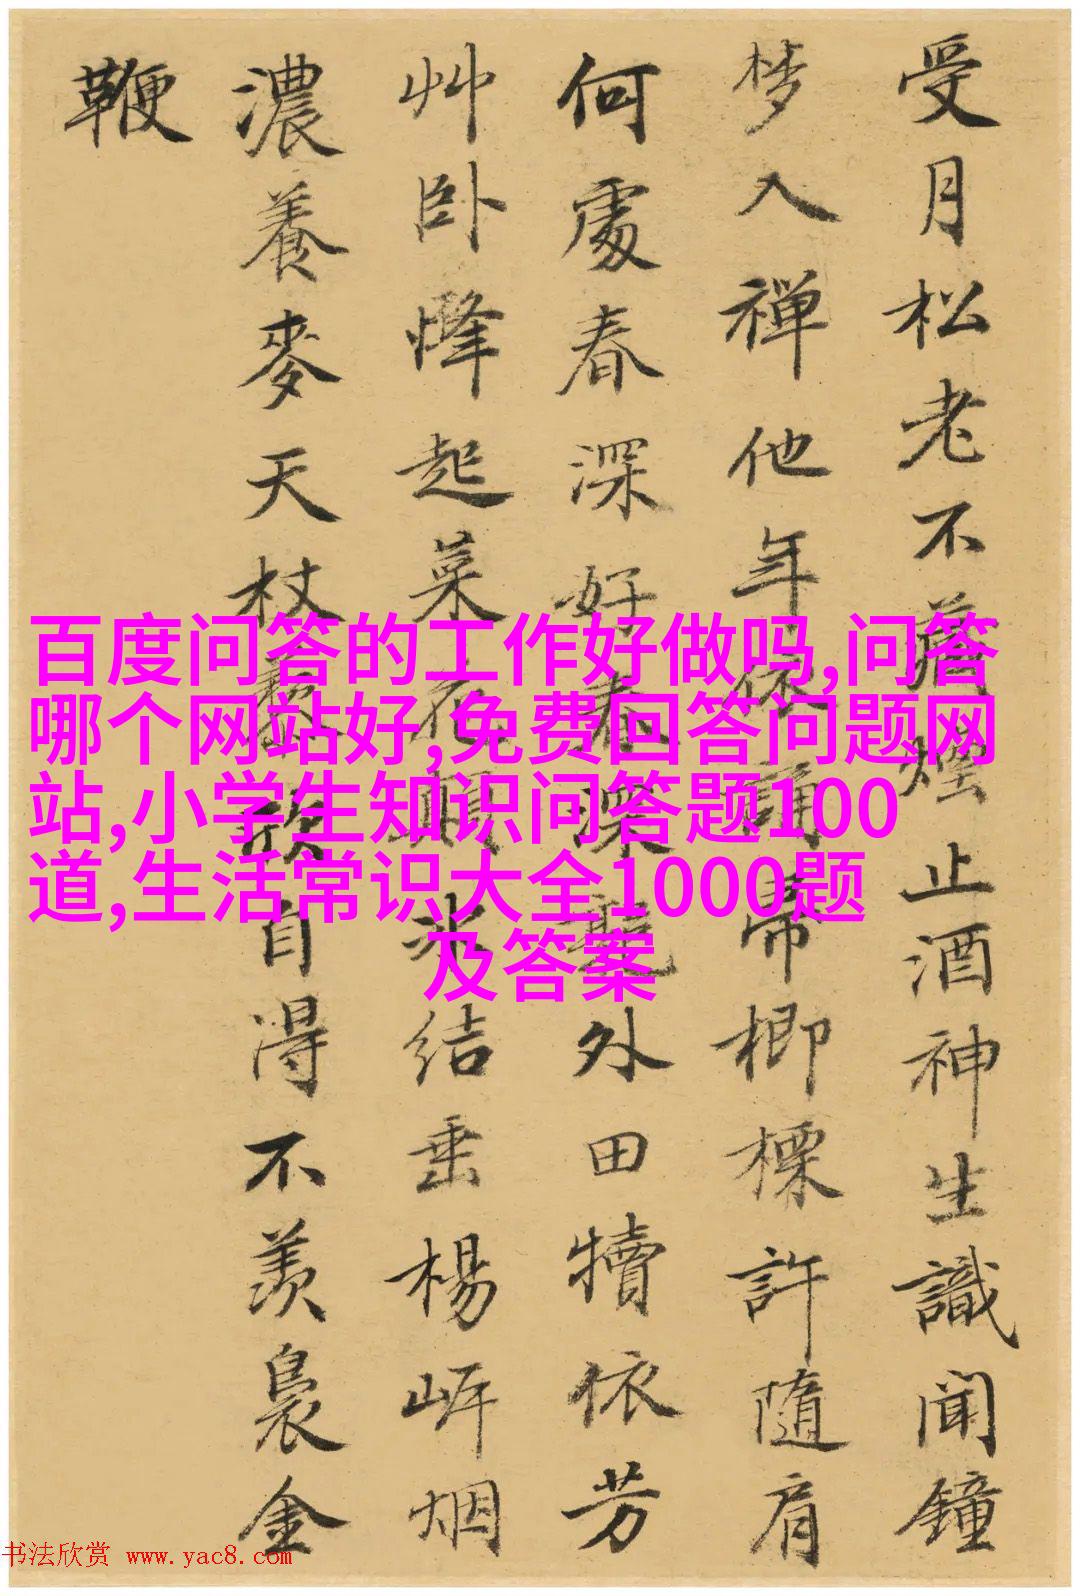 受月松老不煙止酒神生識聞鐘
梦入禅他年誦帚楖許隨肩
何處春深好春深外田犢依芳
艸卧起菜花結垂楊岍烟
濃養麥天杖藜欣自得不羨裊金
鞭
百度问答的工作好做吗,问答
哪个网站好,免费回答问题网
站,小学生知识问答题100
道,生活常识大全1000题
及答案
书法欣赏 www.yac8.com